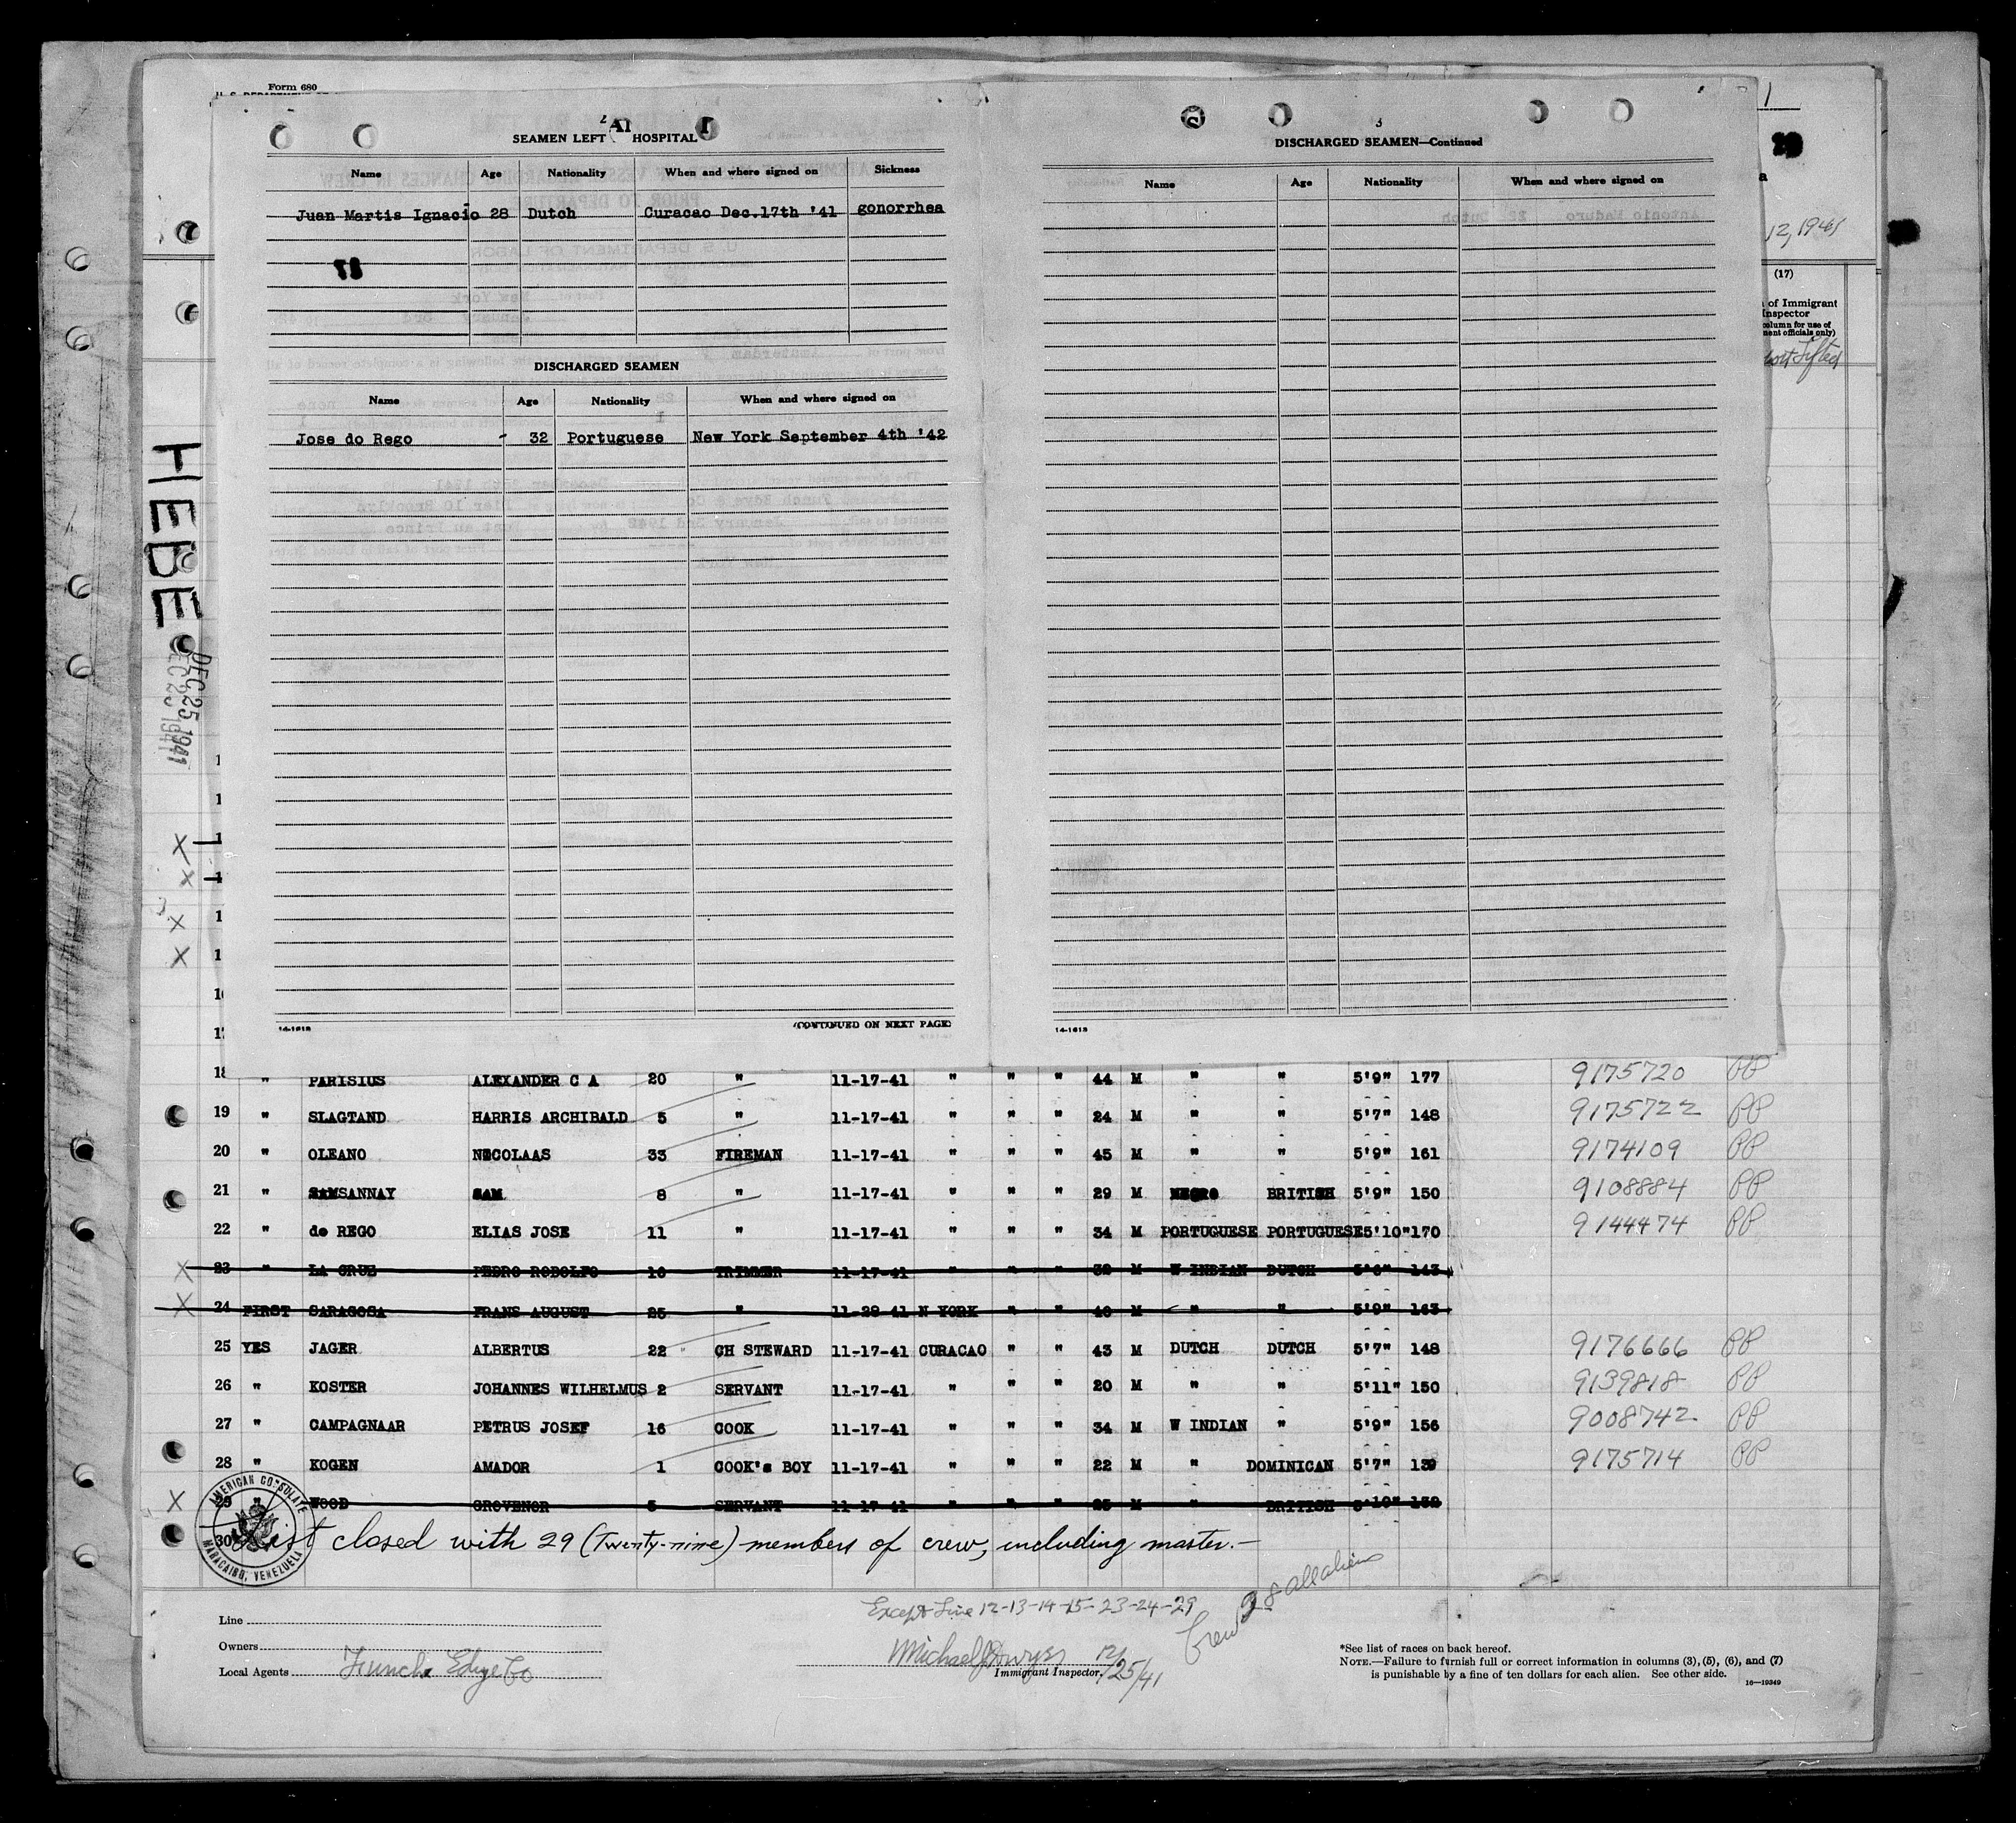 Form 680
SEAMEN LEFT HOSPITAL
Name Age Nationality When and where signed on Sickness
Juan Martis Ignacio 28 Dutch Curacao Dec.17th '41 gonorrhea
DISCHARGED SEAMEN
Name Age Nationality When and where signed on
Jose do Rego - 32 Portuguese New York September 4th '42
14-1618 (CONTINUED ON NEXT PAGE)
3
DISCHARGED SEAMEN—Continued
Name Age Nationality When and where signed on
14-1618
12, 1941
(17)
of Immigrant
Inspector
column for use of
ment officials only)
Lifted
HEBE
DEC 25 1941
DEC 25 1941
18 " PARISIUS ALEXANDER C A 20 " 11-17-41 " " " 44 M " " 5'9" 177 9175720 PP
19 " SLAGTAND HARRIS ARCHIBALD 5 " 11-17-41 " " " 24 M " " 5'7" 148 9175722 PP
20 " OLEANO NICOLAAS 33 FIREMAN 11-17-41 " " " 45 M " " 5'9" 161 9174109 PP
21 " SAMSANNAY SAM 8 " 11-17-41 " " " 29 M NEGRO BRITISH 5'9" 150 9108884 PP
22 " de REGO ELIAS JOSE 11 " 11-17-41 " " " 34 M PORTUGUESE PORTUGUESE 5'10" 170 9144474 PP
X 23 " LA CRUZ PEDRO RODOLFO 10 TRIMMER 11-17-41 " " " 32 M W INDIAN DUTCH 5'6" 143
X 24 FIRST SARAGOSA FRANS AUGUST 25 " 11-28-41 N YORK " " 40 M " " 5'9" 163
25 YES JAGER ALBERTUS 22 CH STEWARD 11-17-41 CURACAO " " 43 M DUTCH DUTCH 5'7" 148 9176666 PP
26 " KOSTER JOHANNES WILHELMUS 2 SERVANT 11-17-41 " " " 20 M " " 5'11" 150 9139818 PP
27 " CAMPAGNAAR PETRUS JOSEF 16 COOK 11-17-41 " " " 34 M W INDIAN " 5'9" 156 9008742 PP
28 " KOGEN AMADOR 1 COOK's BOY 11-17-41 " " " 22 M " DOMINICAN 5'7" 139 9175714 PP
X 29 " WOOD GROVENOR 5 SERVANT 11-17-41 " " " 25 M " BRITISH 5'10" 152
30 List closed with 29 (Twenty-nine) members of crew, including master.—
AMERICAN CONSULATE
MARACAIBO, VENEZUELA
Except Line 12-13-14-15-23-24-29
Crew 28 all aliens
Line
Owners
Local Agents Funch Edye Co
Michael J Dwyer 12/25/41
Immigrant Inspector.
*See list of races on back hereof.
NOTE.—Failure to furnish full or correct information in columns (3), (5), (6), and (7)
is punishable by a fine of ten dollars for each alien. See other side.
16—19349